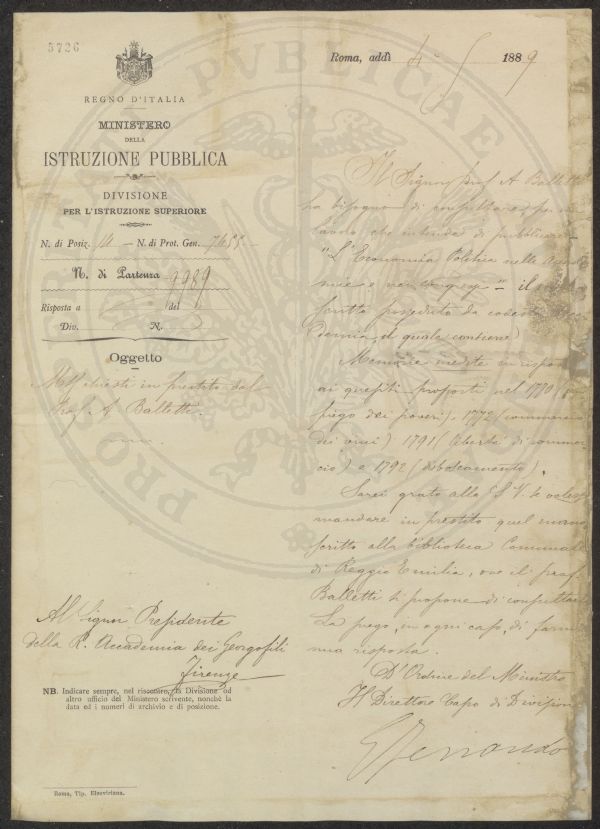 5726
REGNO D'ITALIA
MINISTERO
DELLA
ISTRUZIONE PUBBLICA
DIVISIONE
PER L'ISTRUZIONE SUPERIORE
N. di Posiz. 14 — N. di Prot. Gen. 7455
N. di Partenza 9989
Risposta a del
Div. N.
Oggetto
Mss chiesti in prestito dal
Prof A Balletti.
Al Signor Presidente
della R. Accademia dei Georgofili
Firenze
NB. Indicare sempre, nel riscontro, la Divisione od
altro ufficio del Ministero scrivente, nonchè la
data ed i numeri di archivio e di posizione.
Roma, Tip. Elzeviriana.
Roma, addì 4 5 1889
Il Signor prof A Balletti
ha bisogno di consultare, per un
lavoro che intende di pubblicare
"L'Economia Politica nelle Acade
mie e nei congressi" il mano
scritto posseduto da codesta Acca
demia, il quale contiene
Memorie inedite in risposta
ai quesiti proposti nel 1770 (im
piego dei poveri), 1772 (commercio
dei vini) 1791 (libertà di commer
cio) e 1792 (disboscamento).
Sarei grato alla S. V. se volesse
mandare in prestito quel mano
scritto alla biblioteca Comunale
di Reggio Emilia, ove il prof.
Balletti si propone di consultarlo
La prego, in ogni caso, di farmi
una risposta.
D'Ordine del Ministro
Il Direttore Capo di Divisione
Ferrando
PVBLICAE